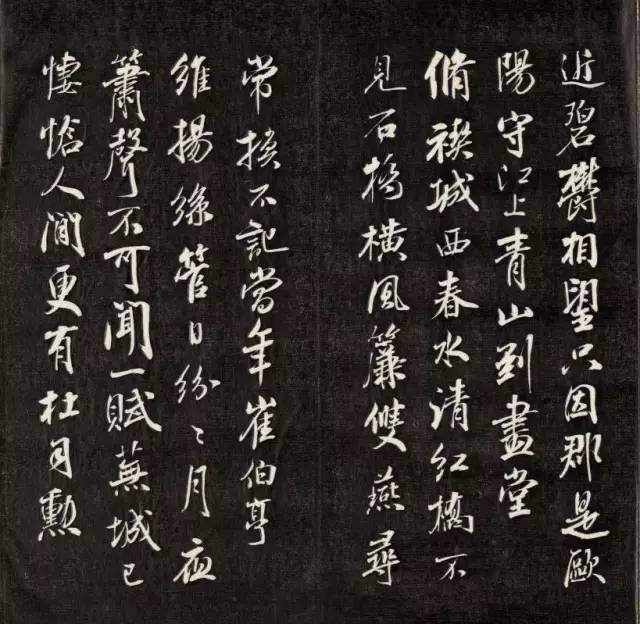 近碧欝相望只因郡是歐
陽守江上青山到畫堂
脩禊城西春水清紅橋不
見石橋橫風簾雙燕尋
常不記當年崔伯亨
維揚絲管日紛〻月夜
簫聲不可聞一賦蕪城已
悽愴人間更有杜司勳